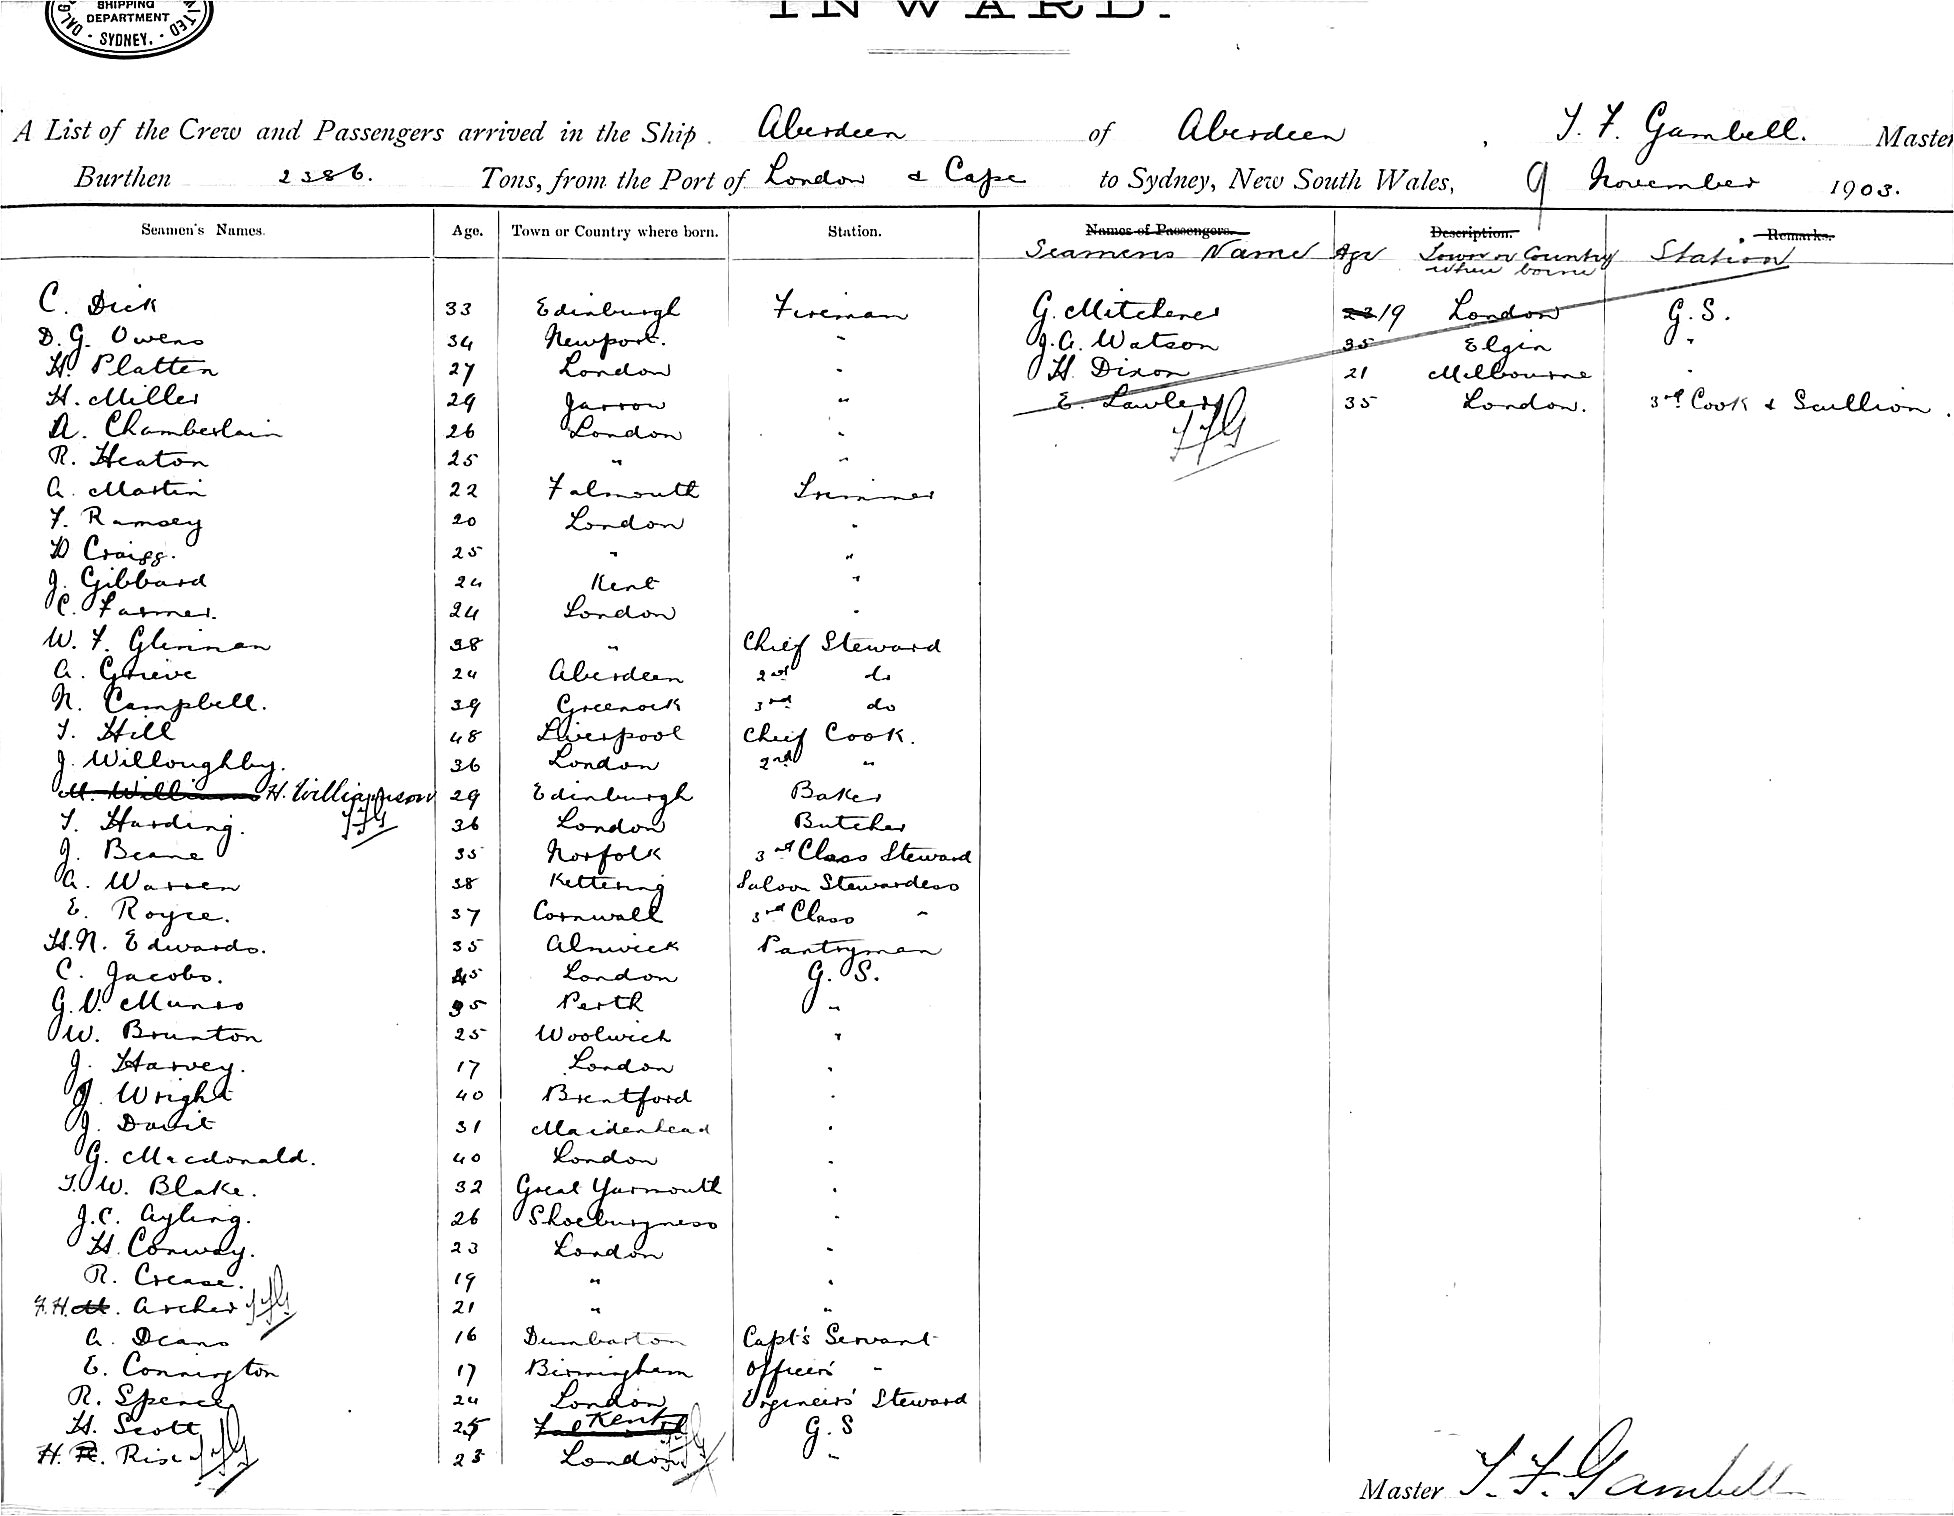 SHIPPING
DEPARTMENT
SYDNEY.
INWARD.
A List of the Crew and Passengers arrived in the Ship . Aberdeen of Aberdeen , T. F. Gambell. Master
Burthen 2386. Tons, from the Port of London & Cape to Sydney, New South Wales, 9 November 1903.
Seamen's Names. Age. Town or Country where born. Station. Names of Passengers. Description. Remarks.
Seamens Name Age Town or Country where borne Station
C. Dick 33 Edinburgh Fireman G. Mitchener 23 19 London G.S.
D. G. Owens 34 Newport. " J. A. Watson 35 Elgin "
H. Platten 27 London " H. Dixon 21 Melbourne "
H. Miller 29 Jarrow " E. Lawler 35 London. 3rd Cook & Scullion.
A. Chamberlain 26 London " TFG
R. Heaton 25 " "
A. Martin 22 Falmouth Trimmer
F. Ramsey 20 London "
D Craigg. 25 " "
J. Gibbard 24 Kent "
C. Farmer. 24 London "
W. F. Glinnan 38 " Chief Steward
A. Grieve 24 Aberdeen 2nd do
N. Campbell. 39 Greenock 3rd do
T. Hill 48 Liverpool Chief Cook.
J. Willoughby. 36 London 2nd "
H. Williamson 29 Edinburgh Baker
T. Harding. TFG 36 London Butcher
J. Beane 35 Norfolk 3rd Class Steward
A. Warren 38 Kettering Saloon Stewardess
E. Royce. 37 Cornwall 3rd Class "
H.N. Edwards. 35 Alnwick Pantryman
C. Jacobs. 45 London G. S.
G. V. Munro 35 Perth "
W. Brunton 25 Woolwich "
J. Harvey. 17 London "
J. Wright 40 Brentford "
J. Davit 31 Maidenhead "
G. Macdonald. 40 London "
T. W. Blake. 32 Great Yarmouth "
J.C. Ayling. 26 Shoeburyness "
H. Conway. 23 London "
R. Crease. 19 " "
F.H. M. Archer TFG 21 " "
A. Deans 16 Dumbarton Capt's Servant
E. Connington 17 Birmingham Officers' "
R. Spence 24 London Engineers' Steward
H. Scott 25 Kent G.S
H. R. Rise TFG 23 London TFG "
Master T. F. Gambell